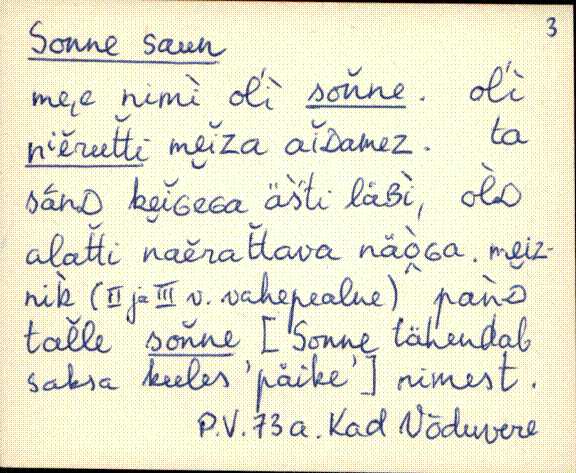 3
Sonne saun
mee nimì oĺì soňne. oĺì
niěruťti mĕĭza aĭᴅamez. ta
sánᴅ kĕĭɢeɢa äšti läʙì, òlᴅ
alaťti naĕraťtava näòɢa. mĕiz-
nik̀ (II ja III v. vahepealne) paǹᴅ
taľle soňne [Sonne tähendab
saksa keeles 'päike'] nimest.
P.V. 73 a. Kad Võduvere